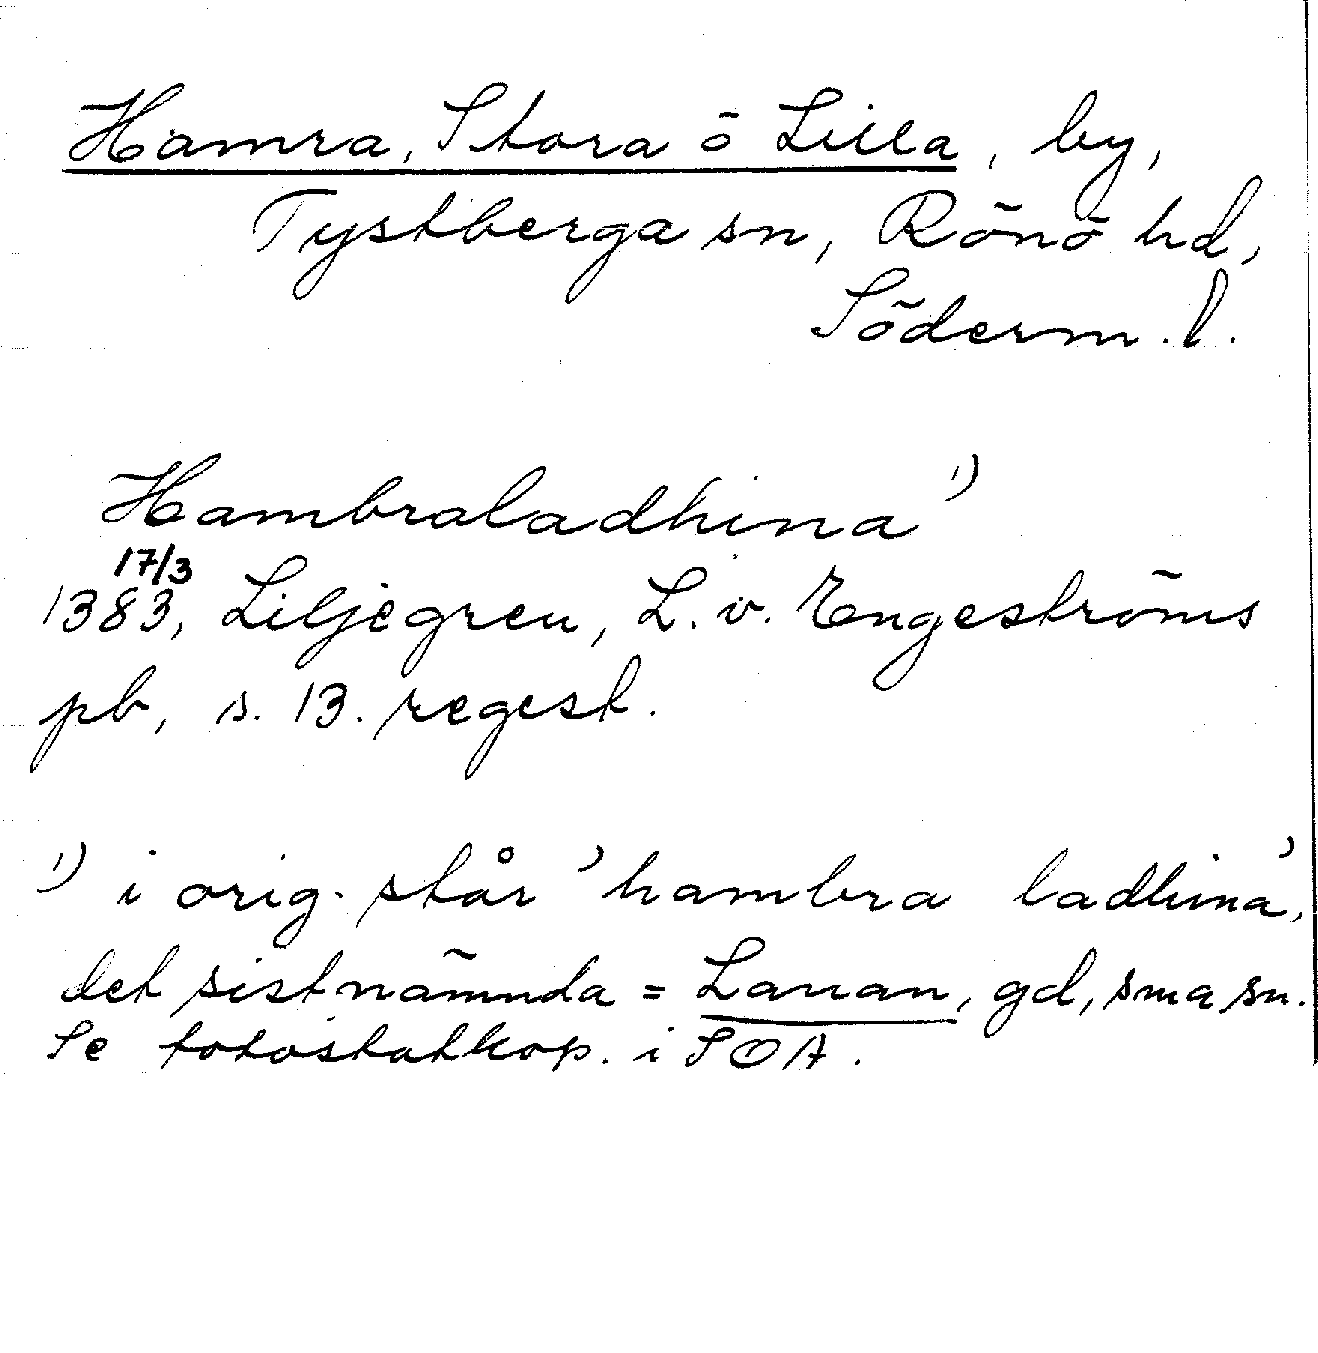 Hamra, Stora ō Lilla, by,
Tystberga sn, Rönö hd,
Söderm. l.
Hambraladhina 1)
17/3
1383, Liljegren, L. v. Engeströms
pb, s. 13. regest.
1) i orig. står 'hambra ladhina',
det sistnämnda = Lanan, gd, sma sn.
Se fotostatkop. i SOA.